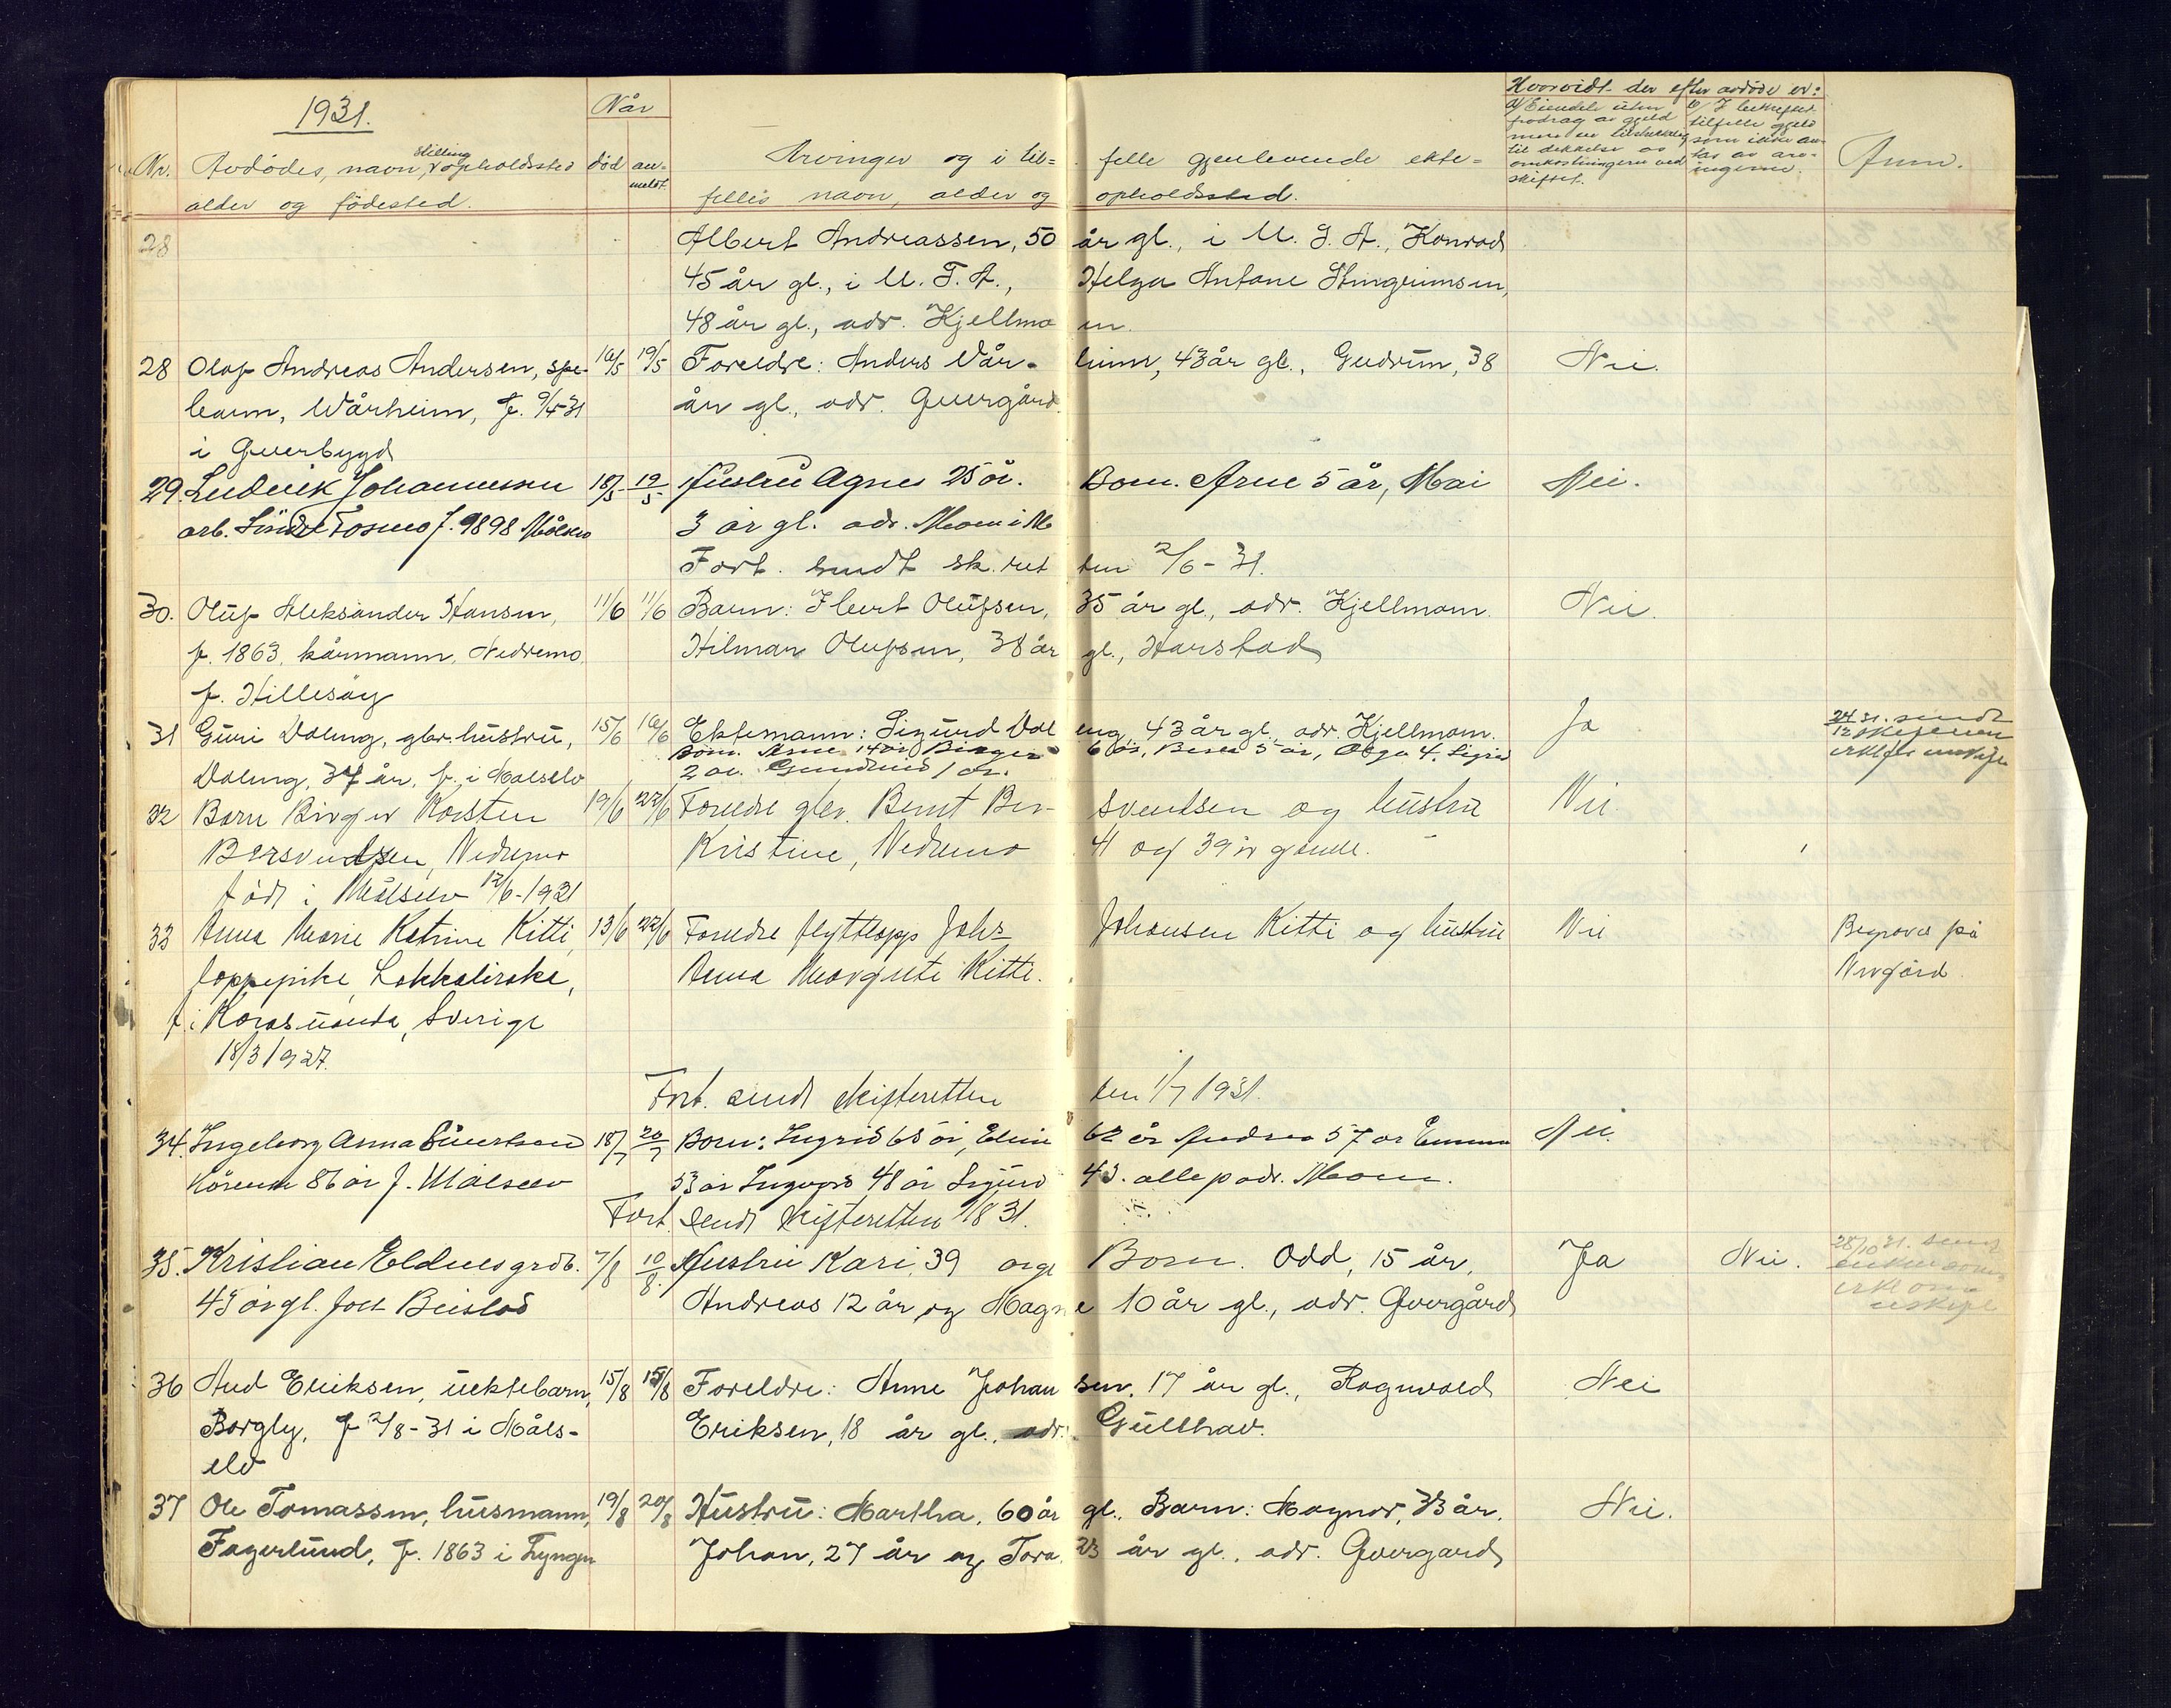 1931.
Når
Hvorvidt der efter avdøde er:
a/ Eiendele uten
fradrag av gjeld
mere en tilstrekkelig
til dekkelse av
omkostningerne ved
skiftet.
b/ I bekreftet
tilfelle gjeld
som ikke an-
tas av arv-
ingerne.
Nr. Avdødes, navn, stilling opholdssted død an- Arvinger og i til- felle gjenlevende ekte- Anm.
alder og fødested. meldt. felles navn, alder og opholdssted.
28 Albert Andreassen, 50 år gl., i U. S. A., Konrad
45 år gl., i U. S. A., Helga Antone
48 år gl., adr. Kjellmo en.
28 Olaf Andreas Andersen, spe- 16/5 19/5 Foreldre: Anders Vår- heim, 43 år gl., Gudrun, 38 Nei.
barn, Vårheim, f. 9/4-31 år gl., adr. Øvergård.
i Øverbygd
29. Ludvik Johannessen 18/5 19/5 Hustru Agnes 25 år. Born. Arne 5 år, Mai Nei.
arb. Fosmo f. 1898 Målselv 3 år gl. adr. Moen i M
Fort. sendt sk. ret ten 2/6-31.
30. Oluf Aleksander Hansen, 11/6 11/6 Barn: Hbert Olufsen, 35 år gl., adr. Kjellmoen. Nei.
f. 1863, kårmann, Nedremo, Hilmar Olufsen, 38 år gl., Harstad
f. Hillesøy
31 Guri Doleng, gbr. hustru, 15/6 16/6 Ektemann: Sigurd Dol eng, 43 år gl., adr. Kjellmoen. Ja 24/12 31. sendt
Born. Arne 14 år Birger 6 år, 5 år, Olga 4. Sigrid skifteretten
Doleng, 37 år, f. i Målselv 2 år. 1 år. uskifte
32 Barn Birger Karsten 19/6 22/6 Foreldre gbr. Bernt Ber- sventsen og hustru Nei.
Bersvendsen, Nedremo Kristine, Nedremo 41 og 39 år gamle.
født i Målselv 12/6-1931
33 Anna Marie Katrine Kitti, 13/6 22/6 Foreldre flyttlapp Johs Johansen Kitti og hustru Nei Begravet på
lappepike, Anna Margrete Kitti. Nergård.
f. i Karesuando, Sverige
18/3 1927.
Fort. sendt skifteretten den 1/7 1931.
34. Ingeborg Anna Sivertsen 18/7 20/7 Born: Ingrid 65 år, Eline 62 år Andrea 57 år Emma Nei.
86 år f. Målselv 53 år Ingvard 48 år Sigurd 43. alle p adr. Moen.
Fort. sendt skifteretten 1/8 31.
35. Kristian Eldnes grdb. 7/8 10/8 Hustru Kari, 39 år gl Born. Odd, 15 år, Ja Nei. 28/10 31. sendt
45 år gl. født Beistad Andreas 12 år og Magn e 10 år gl., adr. Øvergård
36 Aud Eriksen, uektebarn, 15/8 15/8 Foreldre: Anne Johan sen, 17 år gl., Ragnvald Nei
Borgly, f 2/8-31 i Måls- Eriksen, 18 år gl., adr. Gullhav.
elv
37 Ole Tomassen, husmann, 19/8 20/8 Hustru: Martha, 60 år gl., Barn: Magnor, 33 år, Nei.
Fagerlund, f. 1863 i Lyngen Johan, 27 år og Tora, 23 år gl., adr. Øvergard